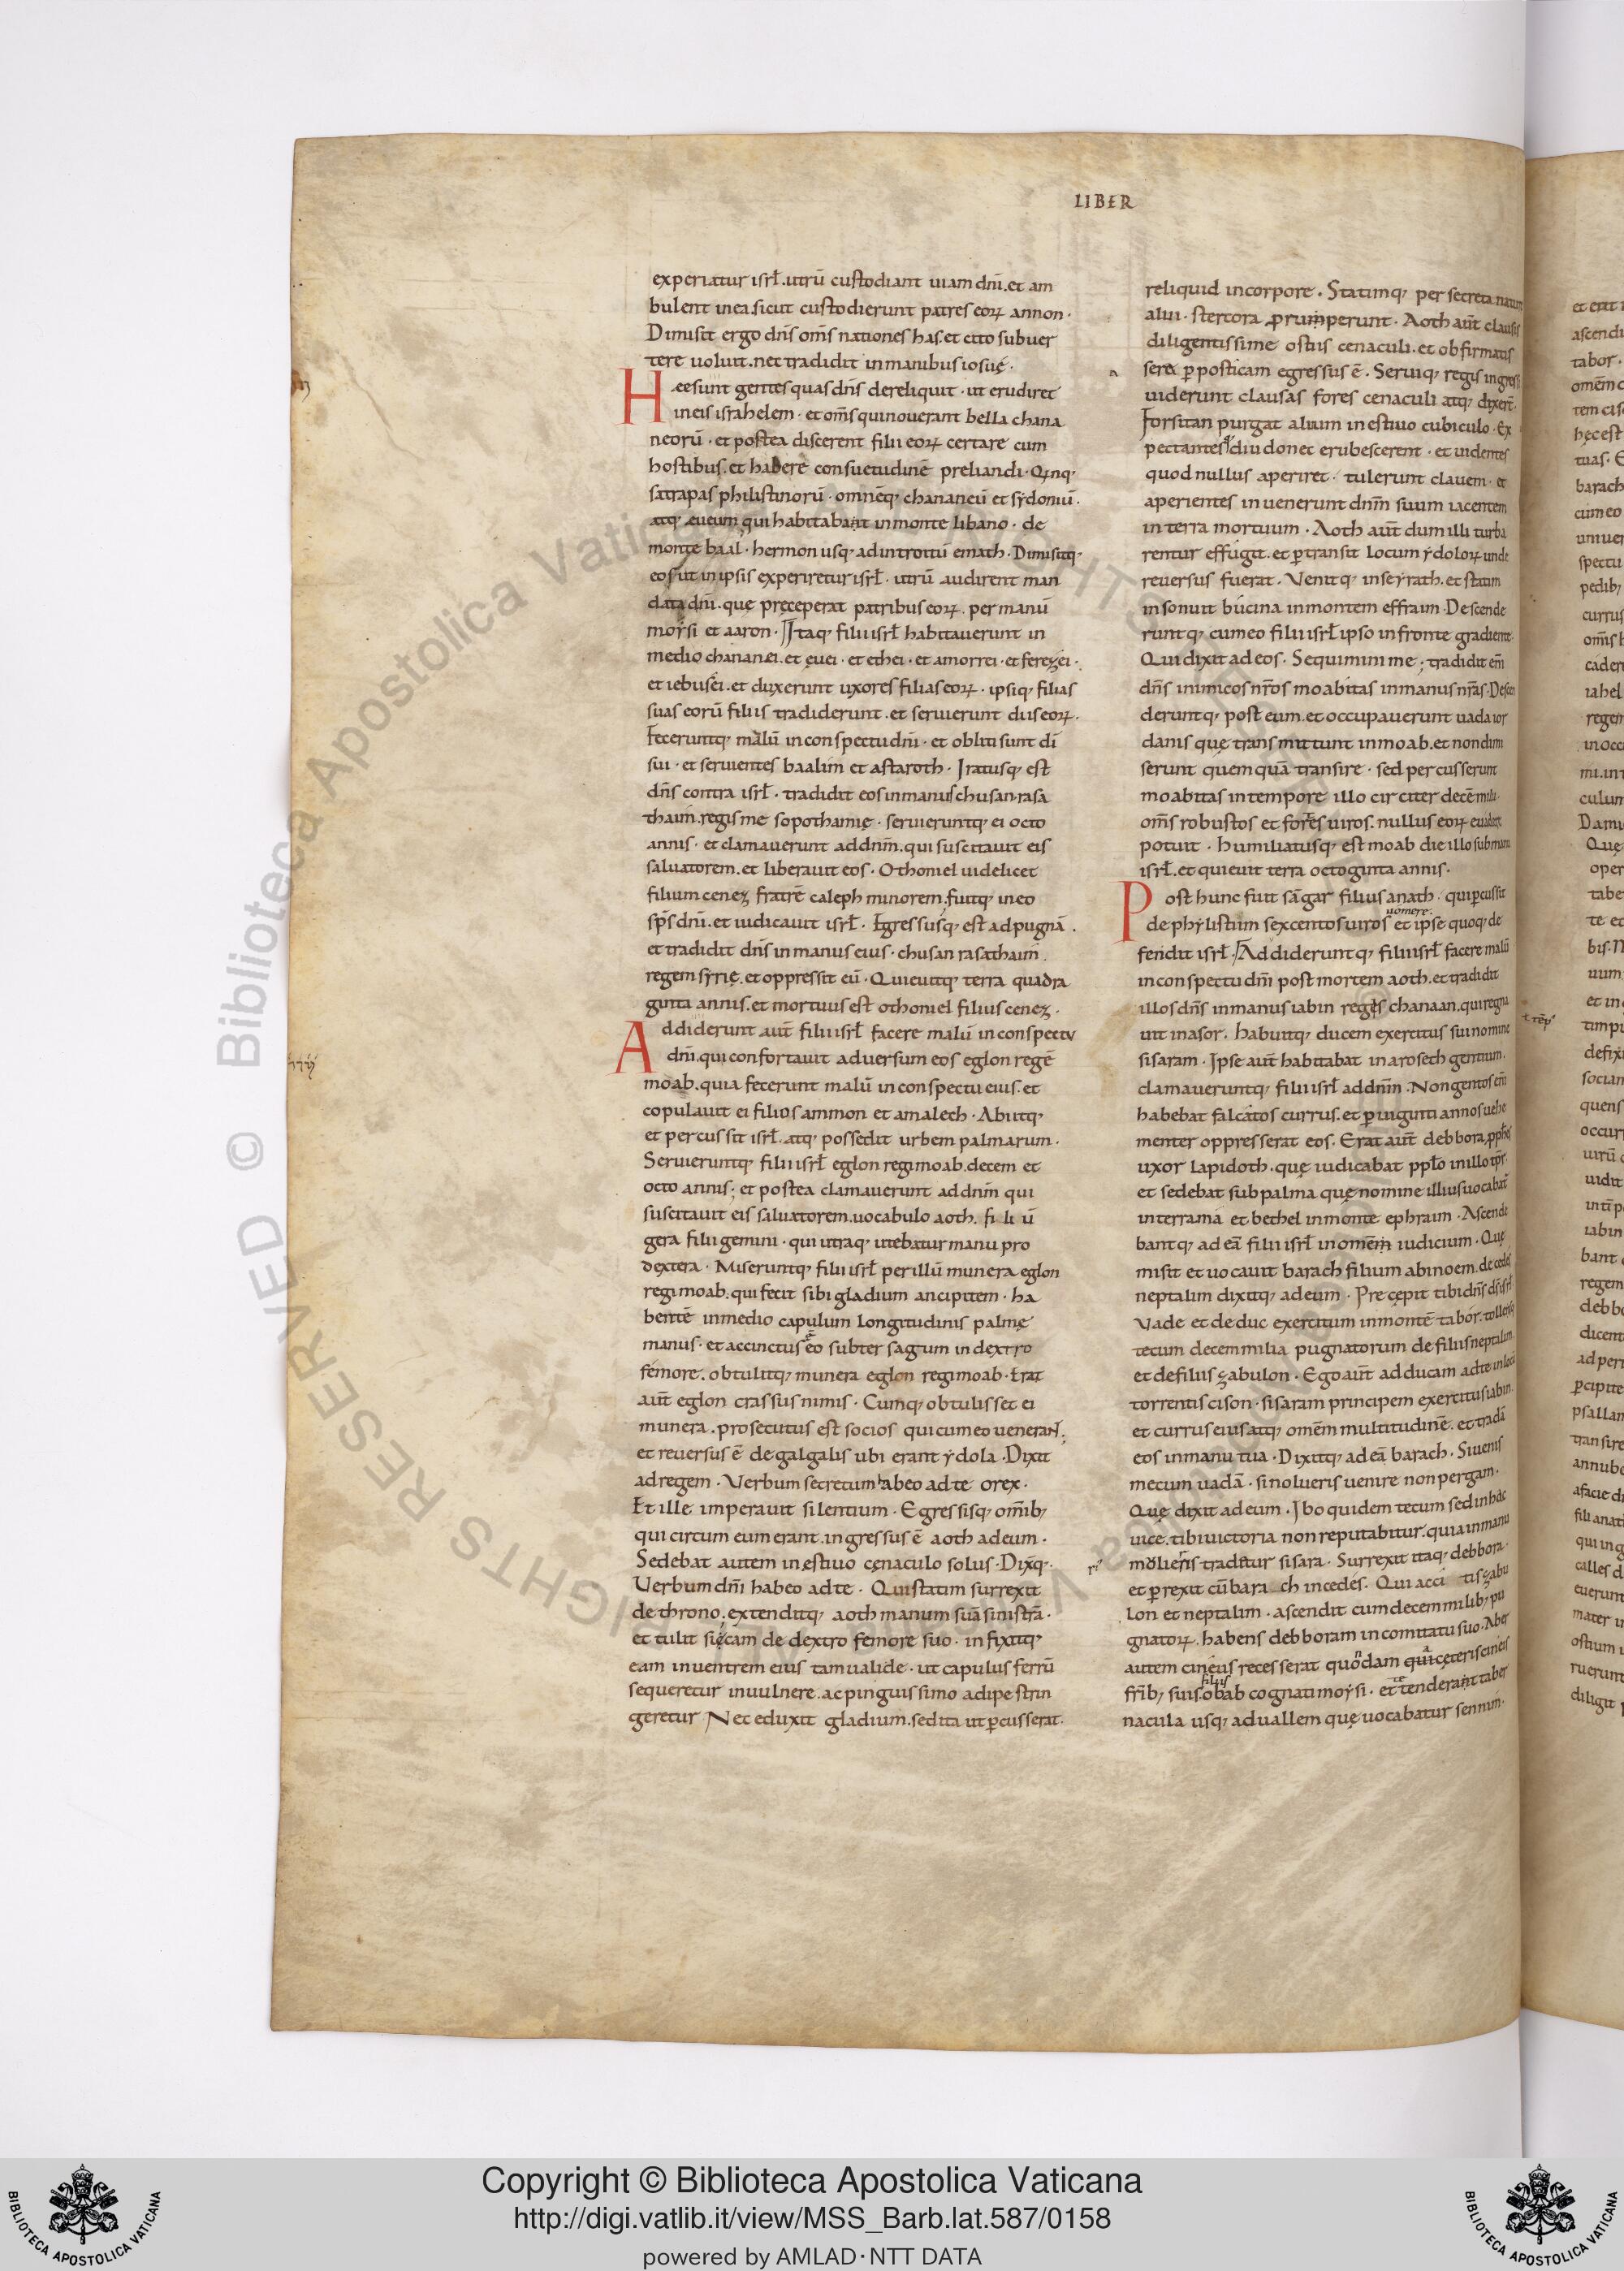 LIBER
experiatur isrł. utrū custodiant uiam dn̄i. et am
bulent in ea. sicut custodierunt patres eoꝝ annon·
Dimisit ergo dn̄s om̄s nationes has. et cito subuer
tere noluit. nec tradidit in manibus iosuę·
Hee sunt gentes quas dn̄s dereliquit · ut erudiret
in eis israhelem · et om̄s qui nouerant bella chana
neorū · et postea discerent filii eoꝝ certare cum
hostibus. et habere consuetudinē preliandi· Qinq·
satrapas philistinorū · omnēq; chananeū et sẏdoniū·
atq; æueum qui habitabant in monte libano · de
monte baal · hermon usq; ad introitū emath · Dimisitq;
eos ut in ipsis experiretur isrł · utrū audirent man
data dn̄i. que pręceperat patribus eoꝝ. per manū
moẏsi et aaron · Itaq; filii isrł habitauerunt in
medio chananei. et euei · et ethei · et amorrei · et ferezei ·
et iebusei. et duxerunt uxores filias eoꝝ · ipsiq; filias
suas eorū filiis tradiderunt. et seruierunt diis eoꝝ·
Feceruntq; malū in conspectu dn̄i · et obliti sunt dī
sui · et seruientes baalim et astaroth · Iratusq; est
dn̄s contra isrł · tradidit eos in manus chusan rasa
thaim. regis mesopothamię · seruieruntq; ei octo
annis · et clamauerunt ad dn̄m. qui suscitauit eis
saluatorem. et liberauit eos · Othoniel uidelicet
filium cenez fratrē caleph minorem. fuitq; in eo
sp̄s dn̄i. et iudicauit isrł · Egressusq; est ad pugnā ·
et tradidit dn̄s in manus eius · chusan rasathaim
regem sẏrię. et oppressit eū · Quieuitq; terra quadra
ginta annis. et mortuus est othoniel filius cenez ·
Addiderunt aut̄ filii isrł facere malū in conspectu
dn̄i. qui confortauit aduersum eos eglon regē
moab. quia fecerunt malū in conspectu eius. et
copulauit ei filios ammon et amalech · Abiitq;
et percussit isrł. atq; possedit urbem palmarum ·
Seruieruntq; filii isrł eglon regi moab. decem et
octo annis; et postea clamauerunt ad dn̄m qui
suscitauit eis saluatorem. uocabulo aoth. filiū
gera filii gemini · qui utraq; utebatur manu pro
dextera · Miseruntq; filii isrł per illū munera eglon
regi moab. qui fecit sibi gladium ancipitem · ha
bentē in medio capulum longitudinis palmę
manus · et accinctus ē eo subter sagum in dextro
femore. obtulitq; munera eglon regi moab · Erat
aut̄ eglon crassus nimis · Cumq; obtulisset ei
munera. prosecutus est socios qui cum eo uenerant;
et reuersus ē de galgalis ubi erant ẏdola · Dixit
ad regem · Verbum secretum habeo ad te o rex ·
Et ille imperauit silentium · Egressisq; om̄ib;
qui circum eum erant. ingressus ē aoth ad eum ·
Sedebat autem in estiuo cęnaculo solus · Dix̄q;·
Uerbum dn̄i habeo ad te · Qui statim surrexit
de throno. extenditq; aoth manum suā sinistrā ·
et tulit sicam de dextro femore suo · infixitq;
eam in uentrem eius tam ualide · ut capulus ferrū
sequeretur in uulnere. ac pinguissimo adipe strin
geretur Nec eduxit gladium. sed ita ut ꝑcusserat·
reliquid in corpore · Statimq; per secreta natur
alui · stercora ꝓrumperunt · Aoth aut̄ clausis
diligentissime ostiis cenaculi. et obfirmatis
sera ꝑ posticam egressus ē · Seruiq; regis ingressi
uiderunt clausas fores cenaculi atq; dixer̄·
Forsitan purgat aluum in estiuo cubiculo · Ex
pectantesq; diu donec erubescerent · et uidentes
quod nullus aperiret · tulerunt clauem · et
aperientes inuenerunt dn̄m suum iacentem
in terra mortuum · Aoth aut̄ dum illi turba
rentur effugit. et ꝑtransit locum ẏdoloꝝ unde
reuersus fuerat · Venitq; in seẏrath. et statim
insonuit bucina in montem effraim · Descende
runtq; cum eo filii isrł ipso in fronte gradiente·
Qui dixit ad eos · Sequimini me; tradidit em̄
dn̄s inimicos nr̄os moabitas in manus nr̄as· Descen
deruntq; post eum. et occupauerunt uada ior
danis quę transmittunt in moab. et non dimi
serunt quemquā transire · sed percusserunt
moabitas in tempore illo circiter decē milia·
om̄s robustos et fortes uiros. nullus eoꝝ euadere
potuit · humiliatusq; est moab die illo sub manu
isrł. et quieuit terra octoginta annis ·
Post hunc fuit sāgar filius anath · qui ꝑcussit
de phẏlistiim sexcentos uiros uomere· et ipse quoq; de
fendit isrł · Addideruntq; filii isrł facere malū
in conspectu dn̄i post mortem aoth. et tradidit
illos dn̄s in manus iabin regis chanaan. qui regna
uit in asor. habuitq; ducem exercitus sui nomine
sisaram · Ipse aut̄ habitabat in aroseth gentium·
clamaueruntq; filii isrł ad dn̄m · Nongentos em̄
habebat falcatos currus. et ꝑ uiginti annos uehe
menter oppresserat eos. Erat aut̄ debbora ꝓph̄es
uxor lapidoth. quę iudicabat ppłō in illo tp̄r·
et sedebat sub palma quę nomine illius uocabat̄
inter rama et bethel in monte ephraim · Ascende
bantq; ad eā filii isrł in omēm iudicium · Quę
misit et uocauit barach filium abinoem. de cedes
neptalim dixitq; ad eum · Precępit tibi dn̄s d̄s isrł
Vade et deduc exercitum in montē tabor. tollesq;
tecum decem milia pugnatorum de filiis neptalim
et de filiis zabulon · Ego aut̄ adducam ad te in loco
torrentis cison · sisaram principem exercitus iabin·
et currus eius atq; omēm multitudinē. et tradā
eos in manu tua · Dixitq; ad eā barach · Si uenis
mecum uadā · si nolueris uenire non pergam·
Quę dixit ad eum · Ibo quidem tecum sed in hac
uice. tibi uictoria non reputabitur. quia in manu
mulieris tradetur sisara · Surrexit itaq; debbora·
et ꝑrexit cū barach in cedes. Qui acci tis zabu
lon et neptalim · ascendit cum decem milib; pu
gnatoꝝ. habens debboram in comitatu suo · Aber
autem cineus recesserat quondam a ceteris cineis
fr̄ib; suis filiis obab cognati moẏsi · et tetenderat taber
nacula usq; ad uallem quę uocabatur sennim·
Copyright © Biblioteca Apostolica Vaticana
http://digi.vatlib.it/view/MSS_Barb.lat.587/0158
powered by AMLAD·NTT DATA